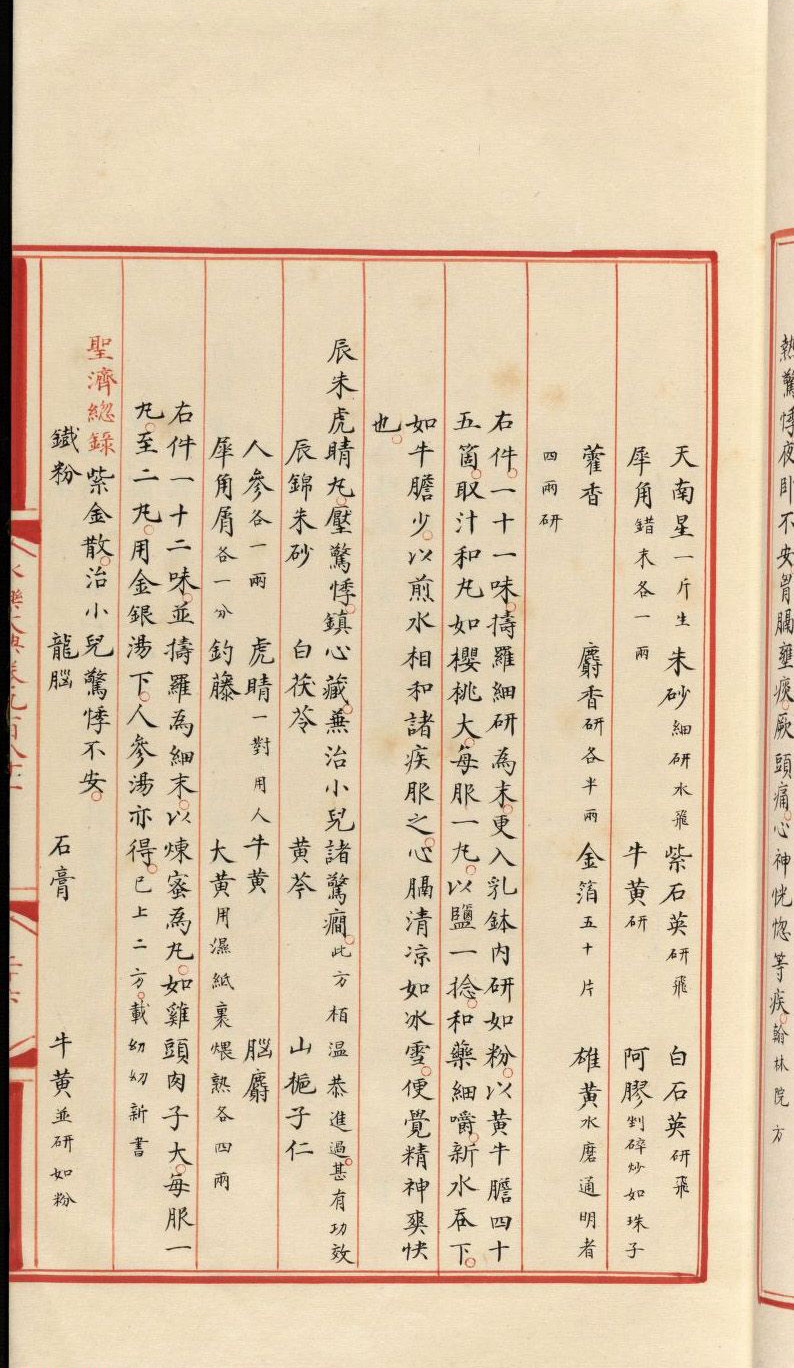 熱驚悸夜卧不安胷膈壅痰厥頭痛心神恍惚等疾翰林院方
天南星一斤生 朱砂細研水飛 紫石英研飛 白石英研飛
犀角錯末各一兩 牛黄研 阿膠剉碎炒如珠子
藿香 麝香研各半兩 金箔五十片 雄黄水磨通明者
四兩研
右件一十一味擣羅細研為末更入乳鉢内研如粉以黄牛膽四十
五箇取汁和丸如櫻桃大每服一丸以鹽一捻和藥細嚼新水吞下
如牛膽少以煎水相和諸疾服之心膈清凉如冰雪便覺精神爽快
也
辰朱虎睛丸壓驚悸鎮心藏兼治小兒諸驚癎此方栢温恭進過甚有功效
辰錦朱砂 白茯苓 黄芩 山梔子仁
人參各一兩 虎睛一對用人 牛黄 腦麝
犀角屑各一分 釣藤 大黄用濕紙裹煨熟各四兩
右件一十二味並擣羅為細末以煉蜜為丸如雞頭肉子大每服一
丸至二丸用金銀湯下人參湯亦得已上二方載幼幼新書
聖濟總錄紫金散治小兒驚悸不安
鐵粉 龍腦 石膏 牛黄並研如粉